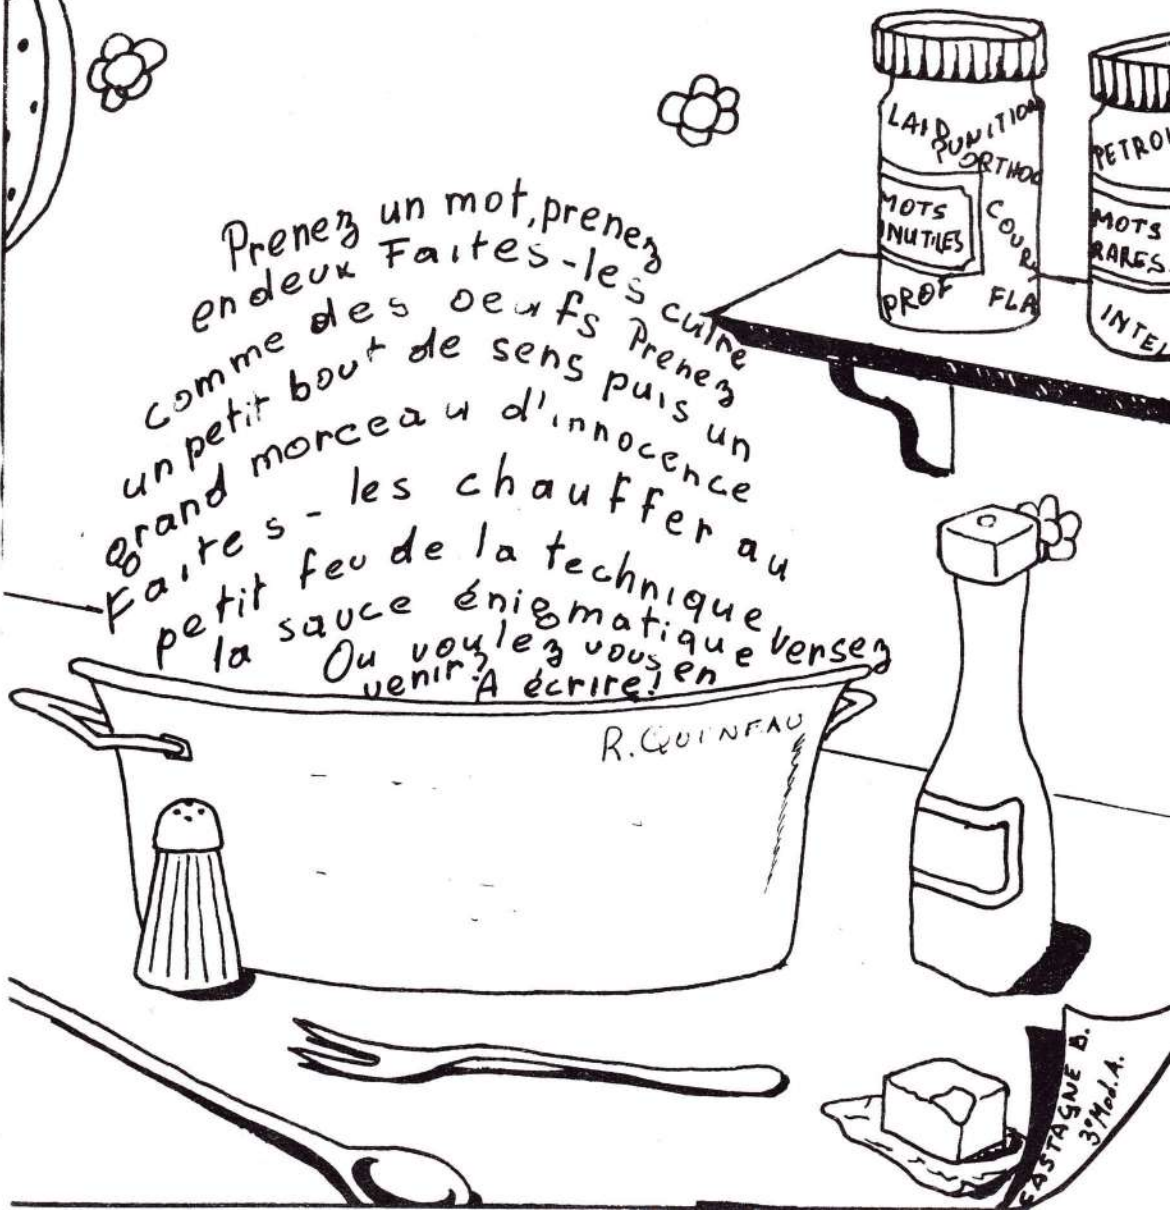 Prenez un mot, prenez
en deux Faites-les cuire
comme des oeufs Prenez
un petit bout de sens puis un
grand morceau d'innocence
Faites-les chauffer au
petit feu de la technique versez
la sauce énigmatique
Ou voulez vous en
venir? A écrire!
R. QUENEAU
LAID
PUNITION
ORTHOG
MOTS
INUTILES
COURS
PROF
FLA
PETROL
MOTS
RARES
INTEL
CASTAGNE B.
3º Mod. A.